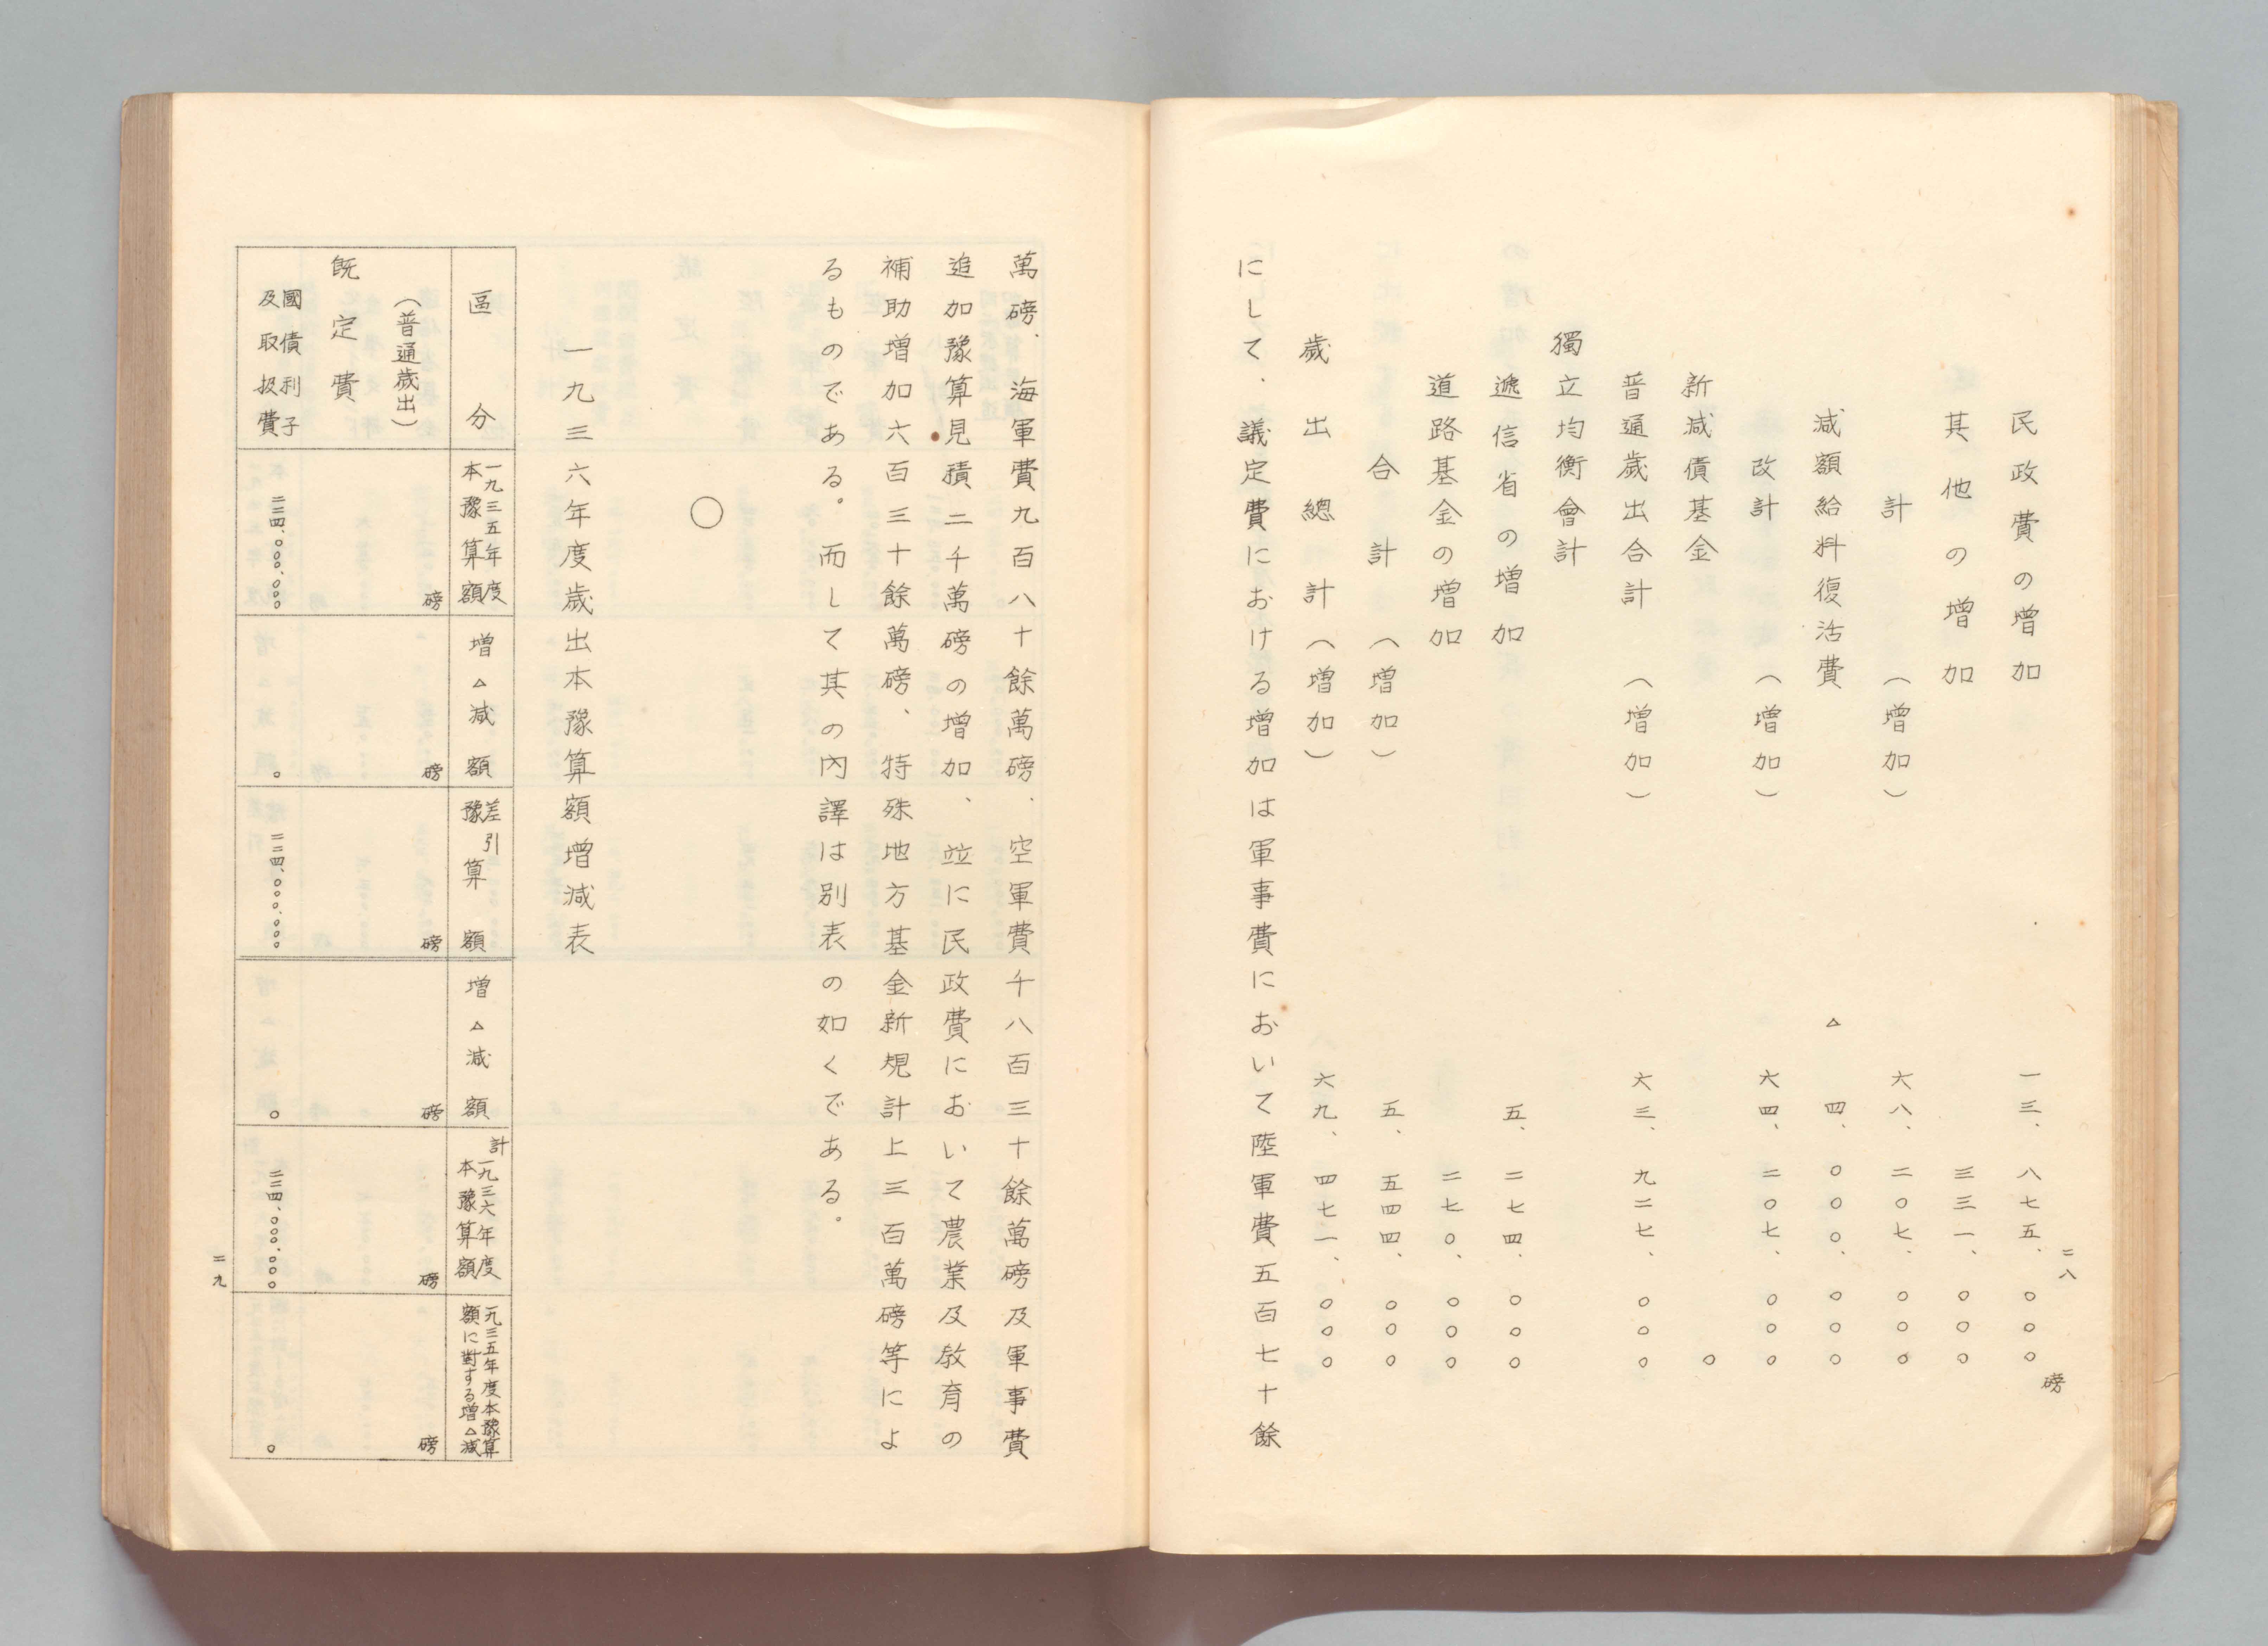 二八
磅
民政費の増加 一三、八七五、〇〇〇
其他の増加 三三一、〇〇〇
計（増加） 六八、二〇七、〇〇〇
減額給料復活費 △四、〇〇〇、〇〇〇
改計（増加） 六四、二〇七、〇〇〇
新減債基金 〇
普通歳出合計（増加） 六三、九二七、〇〇〇
獨立均衡會計
遞信省の増加 五、二七四、〇〇〇
道路基金の増加 二七〇、〇〇〇
合計（増加） 五、五四四、〇〇〇
歳出總計（増加） 六九、四七一、〇〇〇
にして、議定費における増加は軍事費において陸軍費五百七十餘
萬磅、海軍費九百八十餘萬磅、空軍費千八百三十餘萬磅及軍事費
追加豫算見積二千萬磅の増加、竝に民政費において農業及敎育の
補助増加六百三十餘萬磅、特殊地方基金新規計上三百萬磅等によ
るものである。而して其の內譯は別表の如くである。
〇
一九三六年度歳出本豫算額增減表
區分
一九三五年度
本豫算額
增△減額
差引
豫算額
增△減額
計
一九三六年度
本豫算額
一九三五年度本豫算
額に對する增△減
磅 磅 磅 磅 磅 磅
（普通歳出）
既定費
國債利子
及取扱費
二二四、〇〇〇、〇〇〇
〇
二二四、〇〇〇、〇〇〇
〇
二二四、〇〇〇、〇〇〇
〇
二九